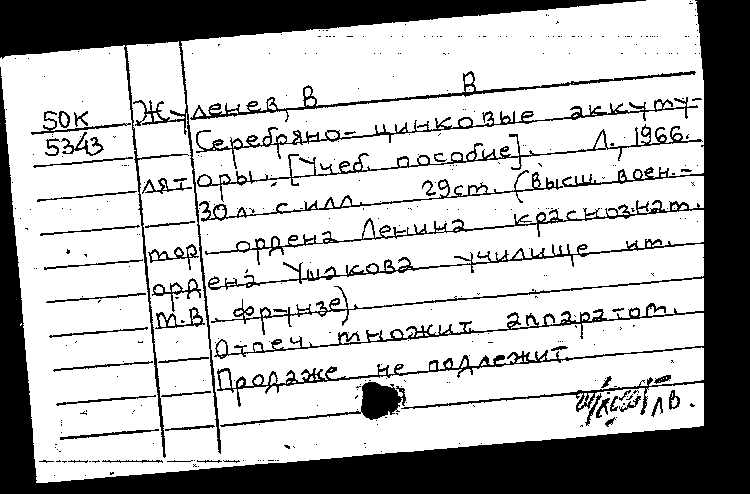 50К Жуленев, В В
5343 Серебряно-цинковые аккуму-
ляторы. [Учеб. пособие]. Л., 1966.
30 л. с илл. 29см. (Высш. воен.-
мор. ордена Ленина краснознам.
ордена Ушакова училище им.
М.В. Фрунзе).
Отпеч. множит. аппаратом.
Продаже не подлежит.
ЛВ.